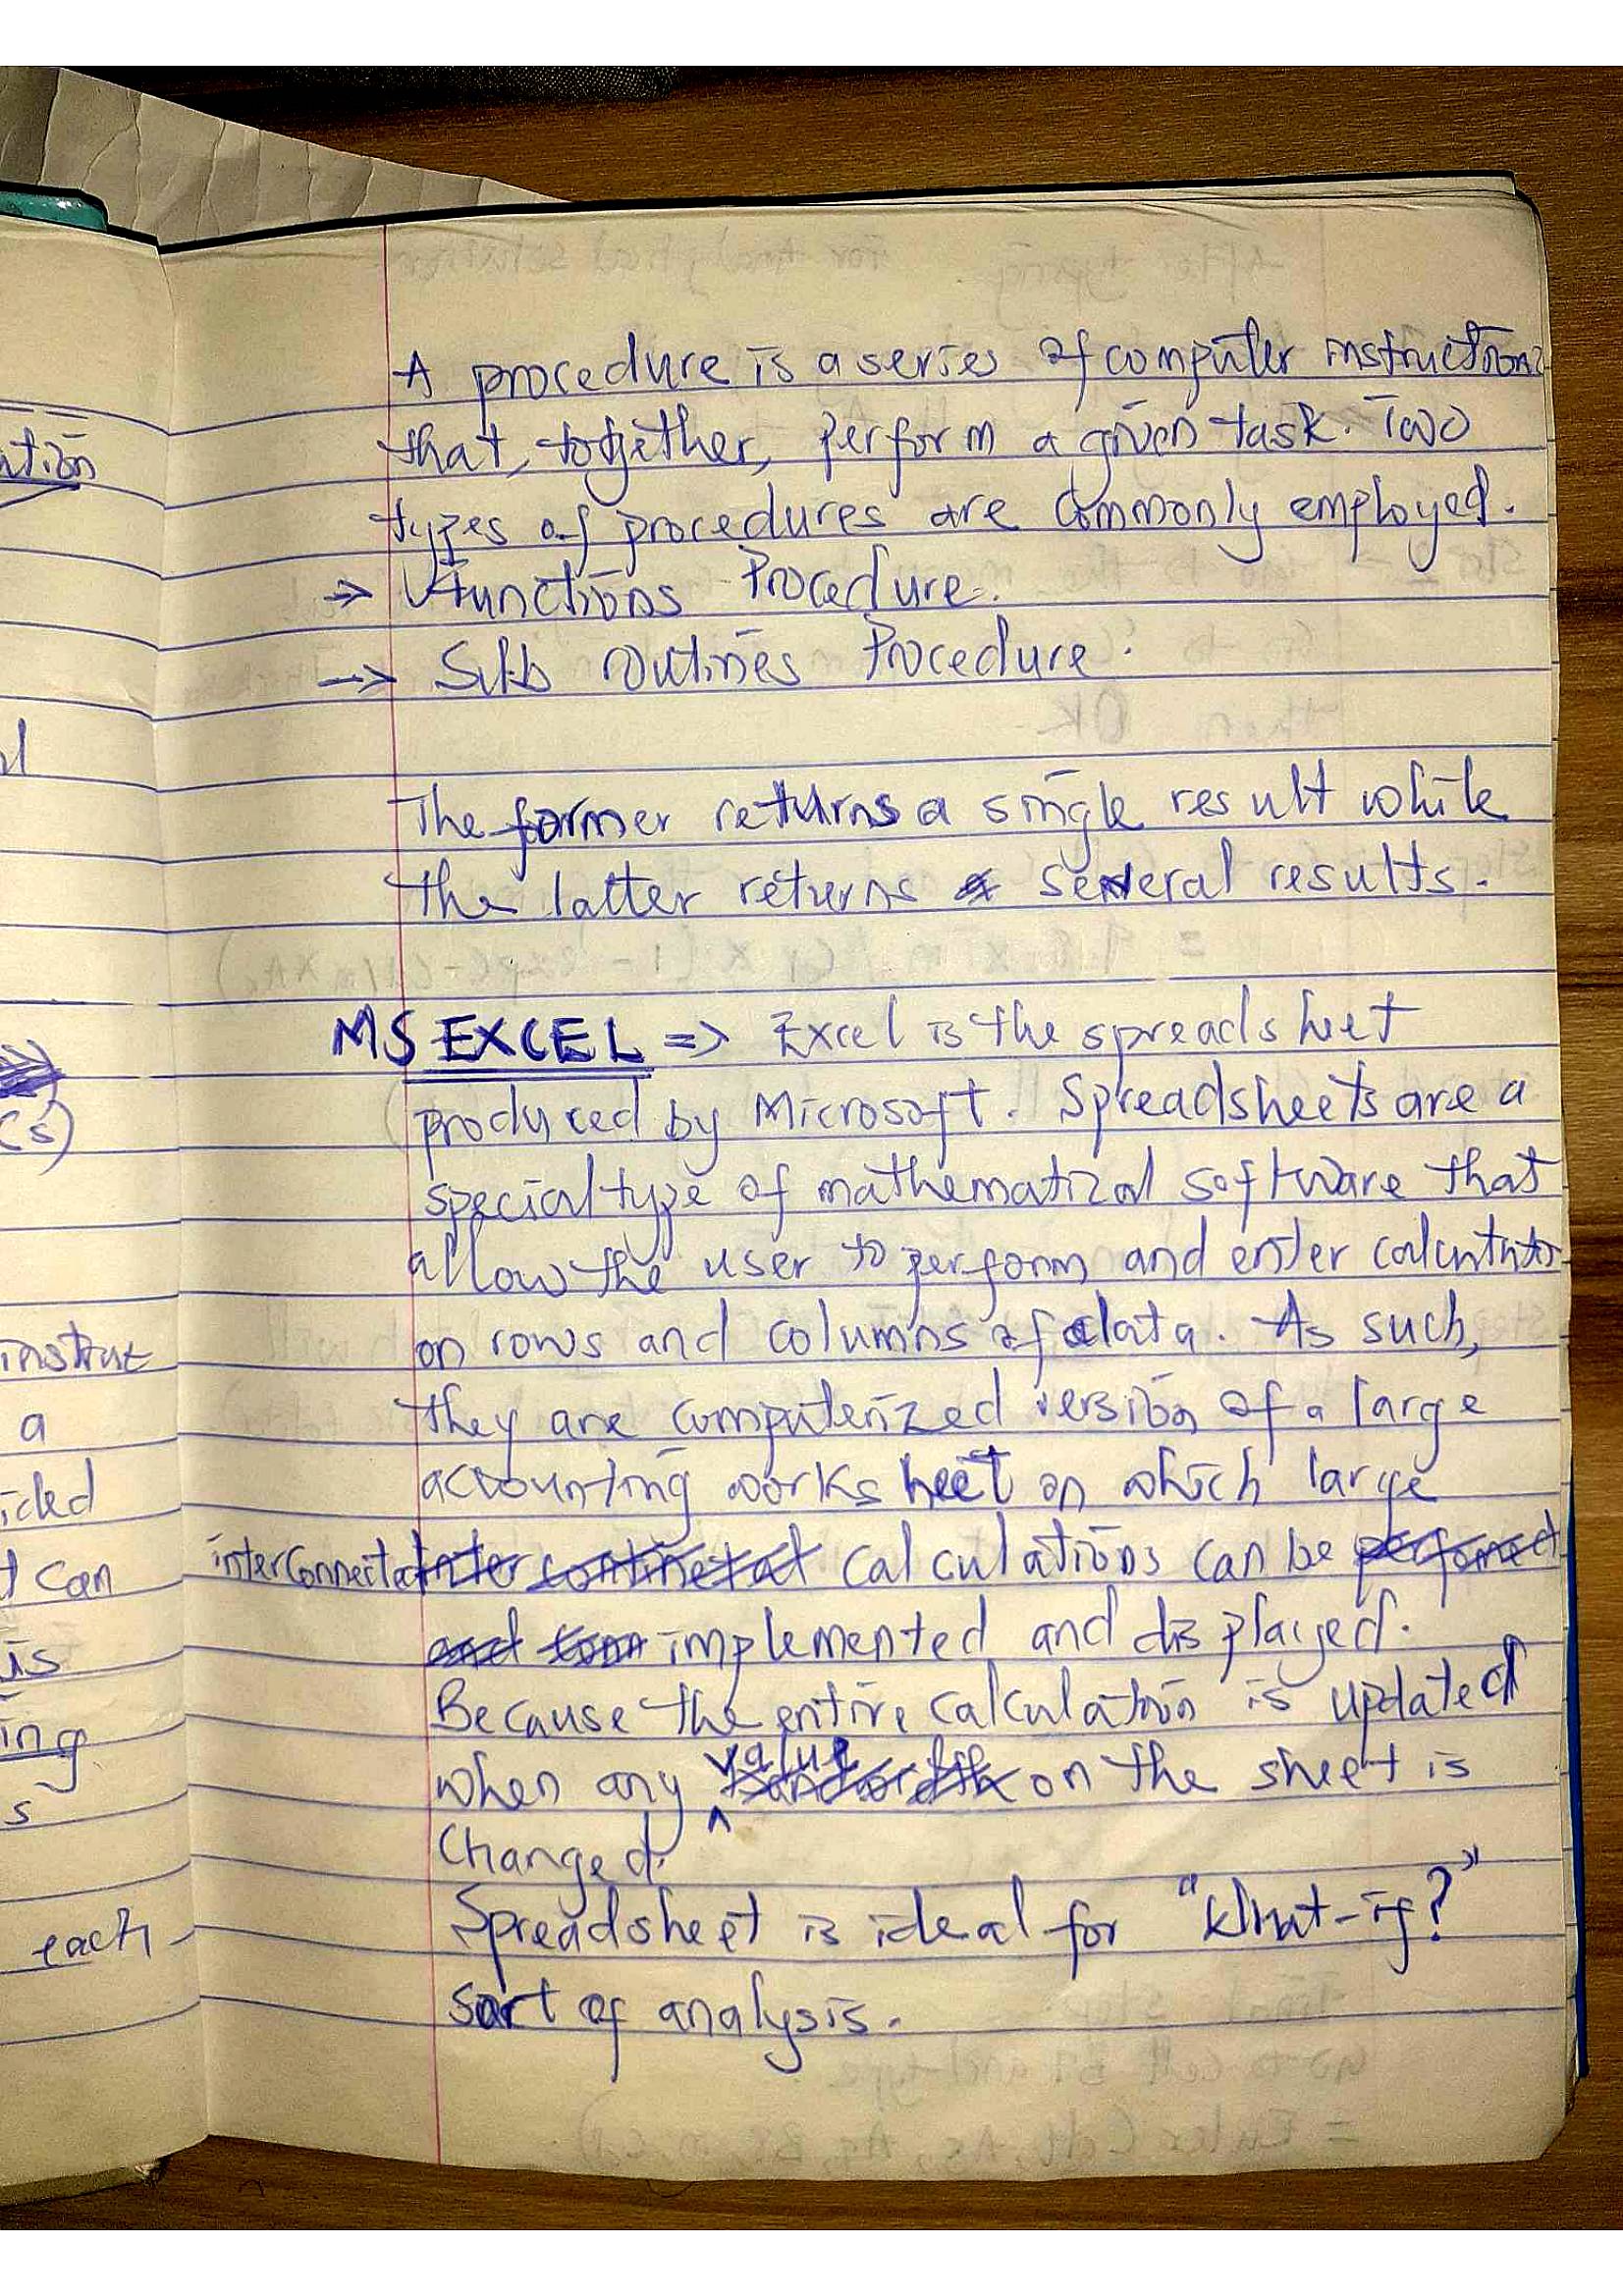 A procedure is a series of computer instructions
that, together, perform a given task. Two
types of procedures are commonly employed.
=> functions Procedure.
-> Sub routines Procedure.
The former returns a single result while
the latter returns several results.
MS EXCEL => Excel is the spreadsheet
produced by Microsoft. Spreadsheets are a
special type of mathematical software that
allow the user to perform and enter
on rows and columns of data. As such,
they are computerized version of a large
accounting worksheet on which large
interconnected calculations can be
implemented and displayed.
Because the entire calculation is updated
when any value on the sheet is
Changed.
Spreadsheet is ideal for "What-if?"
sort of analysis.
ation
cs)
instruct
a
ided
can
is
ing
s
each